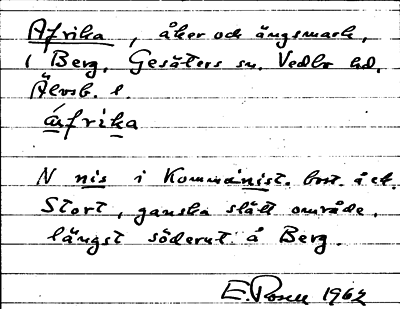 Afrika, åker och ängsmark,
i Berg, Gesäters sn. Vedbo hd.
Älvsb. l.
áfrika
N nis i Kommunist. bort. å et.
Stort, ganska slätt område,
längst söderut å Berg.
E. Rosell 1962